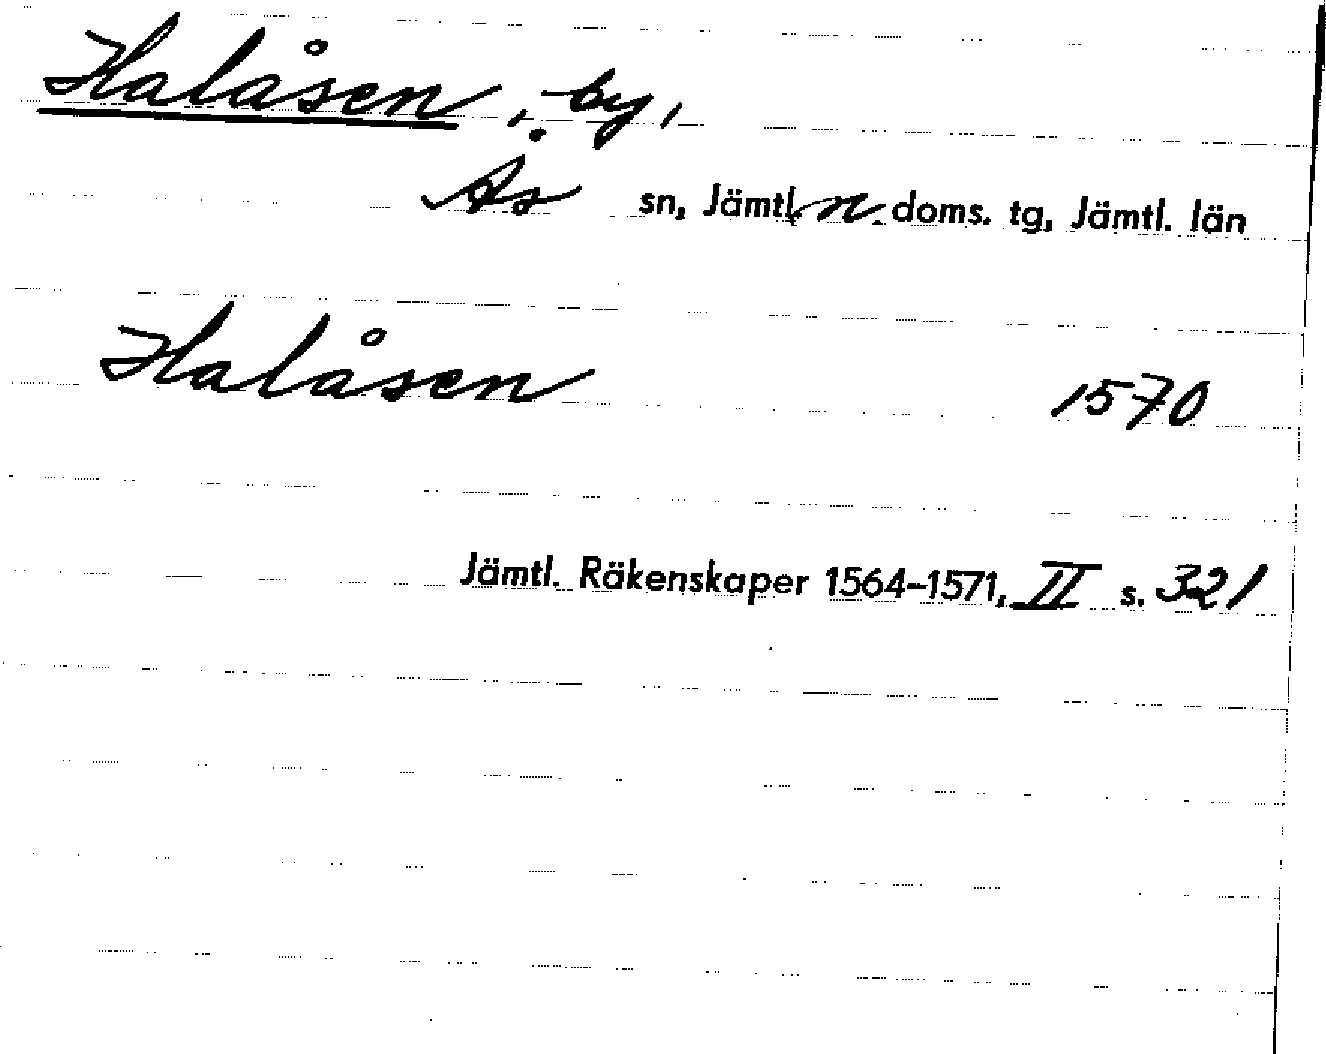 Halåsen, by,
Ås sn, Jämtl. n. doms. tg, Jämtl. län
Halåsen 1570
Jämtl. Räkenskaper 1564-1571, II s. 321